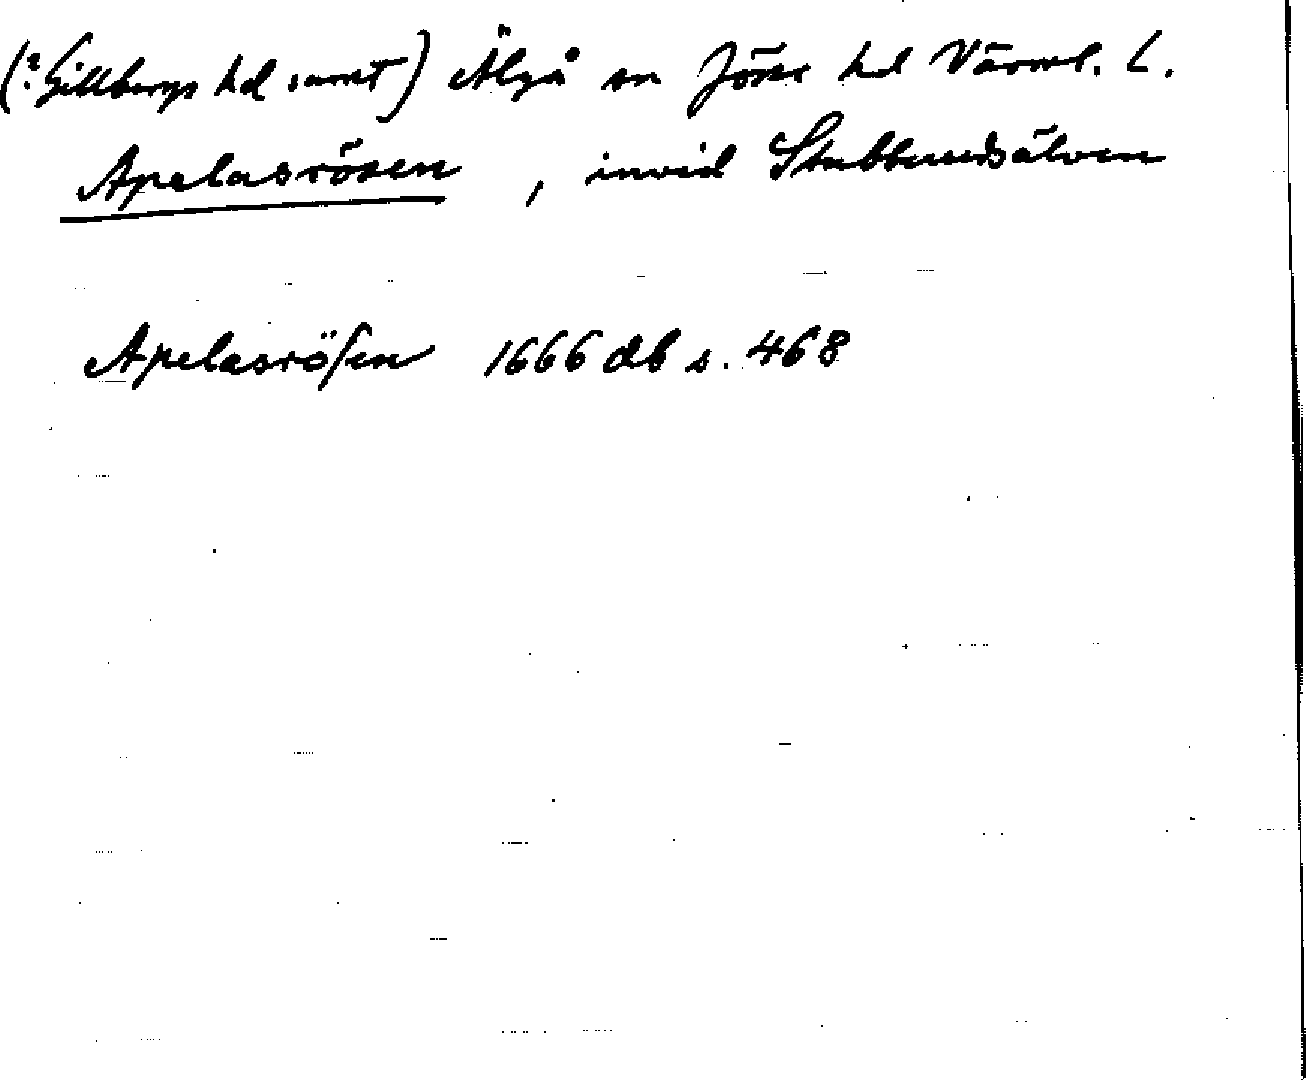 (? Gillbergs hd samt) Älgå sn Jösse hd Värml. L.
Apelasrösen , invid Stubberudsälven
Apelasröſen 1666 db s. 468